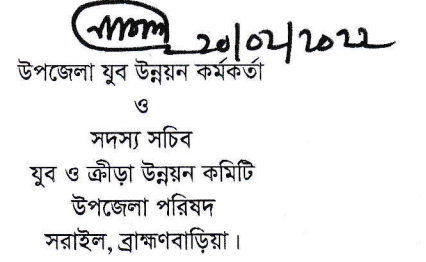 ২০/০২/২০২২
উপজেলা যুব উন্নয়ন কর্মকর্তা
ও
সদস্য সচিব
যুব ও ক্রীড়া উন্নয়ন কমিটি
উপজেলা পরিষদ
সরাইল, ব্রাহ্মণবাড়িয়া।